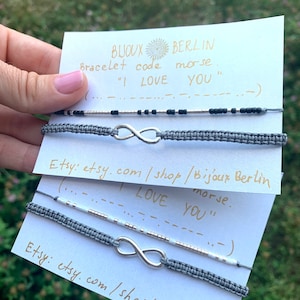 BIJOUX BERLIN
Bracelet code morse
"I LOVE YOU"
Etsy: etsy.com/shop/BijouxBerlin
morse.
"I LOVE YOU"
Etsy: etsy.com/shop